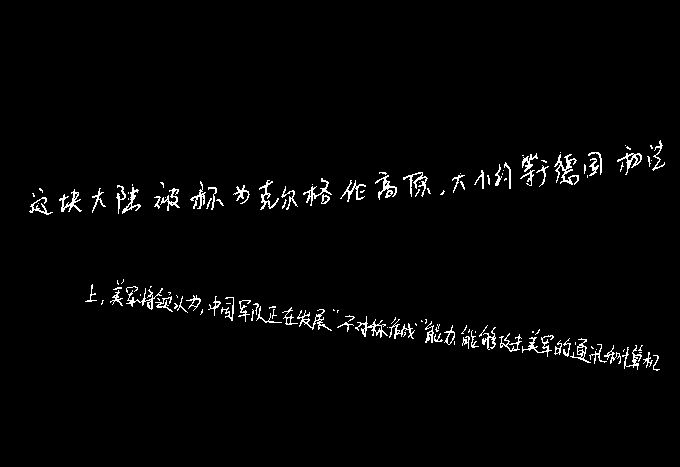 这块大陆被称为克尔格伦高原，大小约等于德国和法
上，美军将领认为，中国军队正在发展"不对称作战"能力，能够攻击美军的通讯和计算机